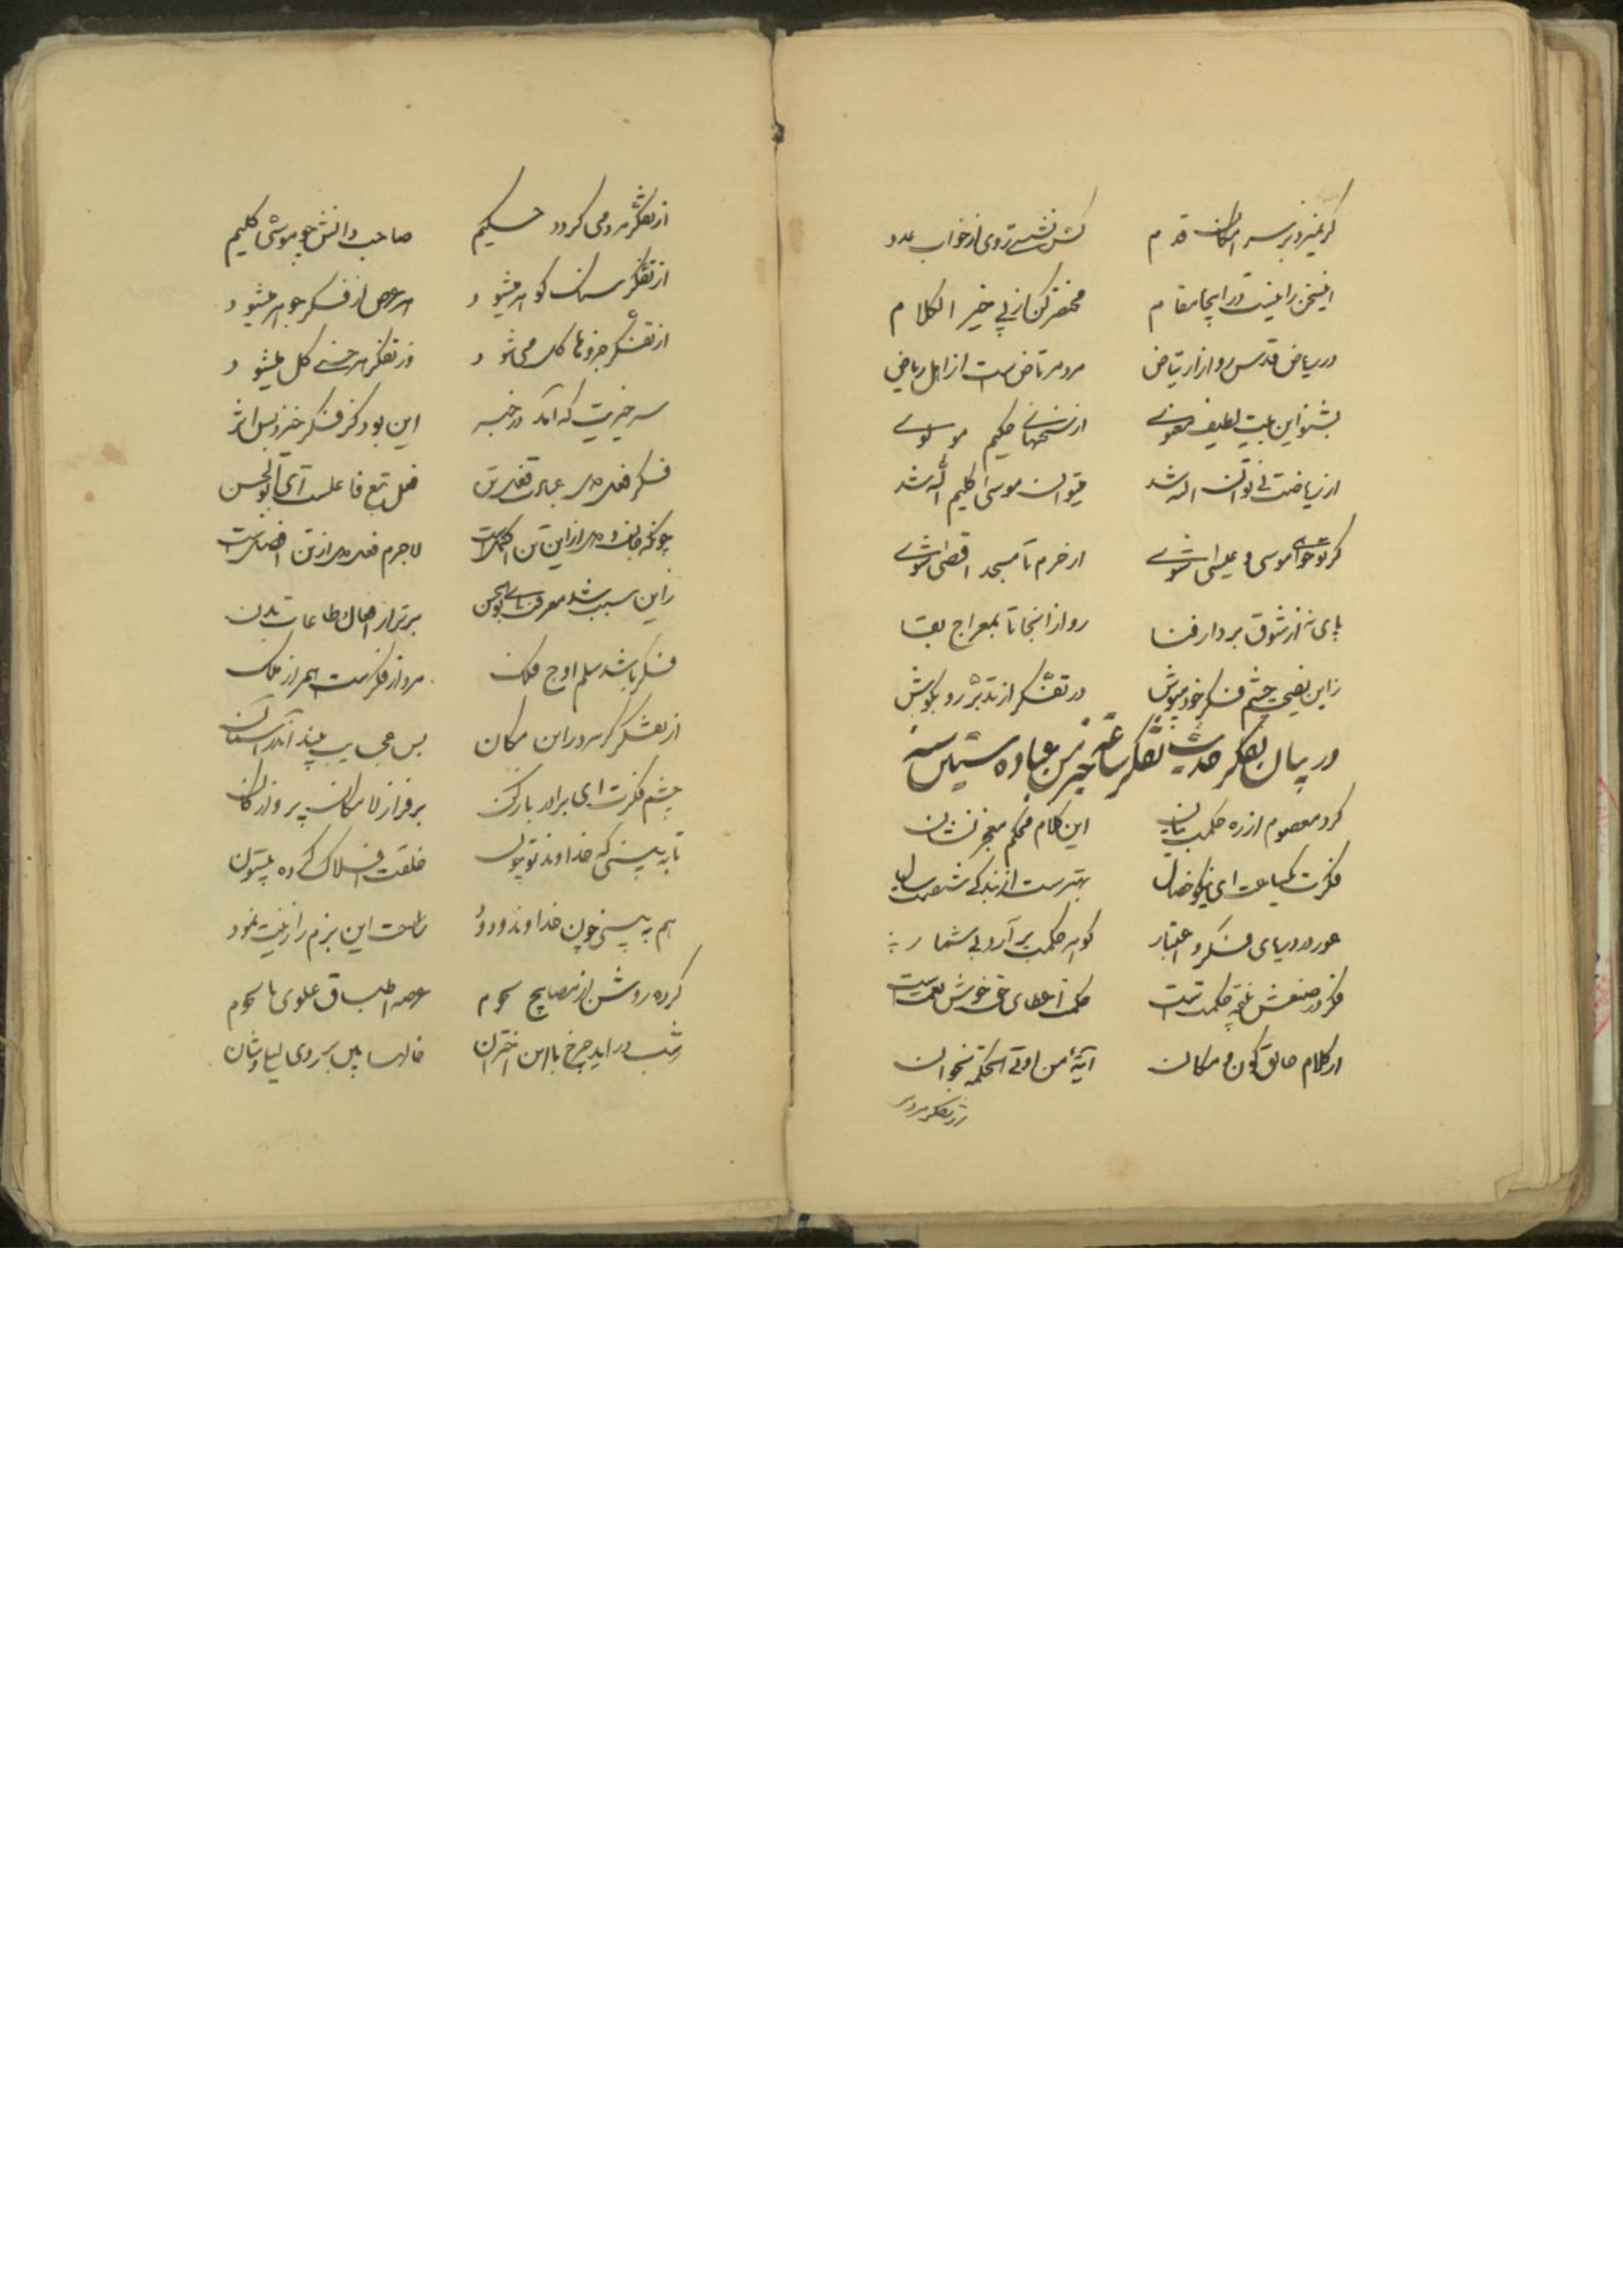 قدم
مختصر کن از پی خیر الکلام
در ریاض قدس رو از ارتیاض مرد مرتاض است از اهل ریاض
بشنو این بیت لطیف معنوی از سخنهای حکیم مولوی
از ریاضت نی توان الله شد میتوان موسی کلیم الله شد
گر تو خواهی موسی و عیسی شوی از حرم تا مسجد اقصی شوی
پای نه از شوق بر دار فنا رو از اینجا تا بمعراج بقا
زاین نصیحت چشم فکر خود مپوش در تفکر از تدبر رو بکوش
در بیان تفکر حدیث تفکر ساعة خیر من عبادة ستین سنه
کرد معصوم از ره حکمت بیان این کلام محکم معجز نشان
فکرت یکساعت ای نیکو خصال بهتر است از بندگی شصت سال
دریای فکر و اعتبار گوهر حکمت بر آور بی شمار
فکر در صنعش حکمت است حکمت از عطای حق خوش نعمت است
از کلام خالق کون و مکان آیهٔ من اوتی الحکمة بخوان
از تفکر مرد
از تفکر مرد می گردد حکیم صاحب دانش چو موسی کلیم
از تفکر سنگ گوهر میشود هر عرض از فکر جوهر میشود
از تفکر جزوها کل می شود وز تفکر هر خسی گل میشود
سر خیریت که آمد در خبر این بود کز فکر خیزد بس اثر
فکر فعل دل عبادت فعل تن فعل تبع فاعلست ای بوالحسن
چونکه جان و دل از این تن اکمل است لاجرم فعل دل از تن افضل است
زاین سبب شد معرفت ای بوالحسن برتر از افعال و طاعات بدن
فکر باشد سلم اوج فلک مرد از فکر است همراز ملک
از تفکر گر مرد در این مکان بس عجایب بیند آندر آسمان
چشم فکرت ای برادر باز کن بر فراز لامکان پرواز کن
تا به بینی که خداوند تو چون خلقت افلاک کرده بیستون
هم به بینی چون خداوند ودود ساحت این بزم را زینت نمود
کرده روشن از مصابیح نجوم عرصه اطباق علوی با نجوم
شب در آید چرخ با این اختران خالها بین بر روی لیلاوشان